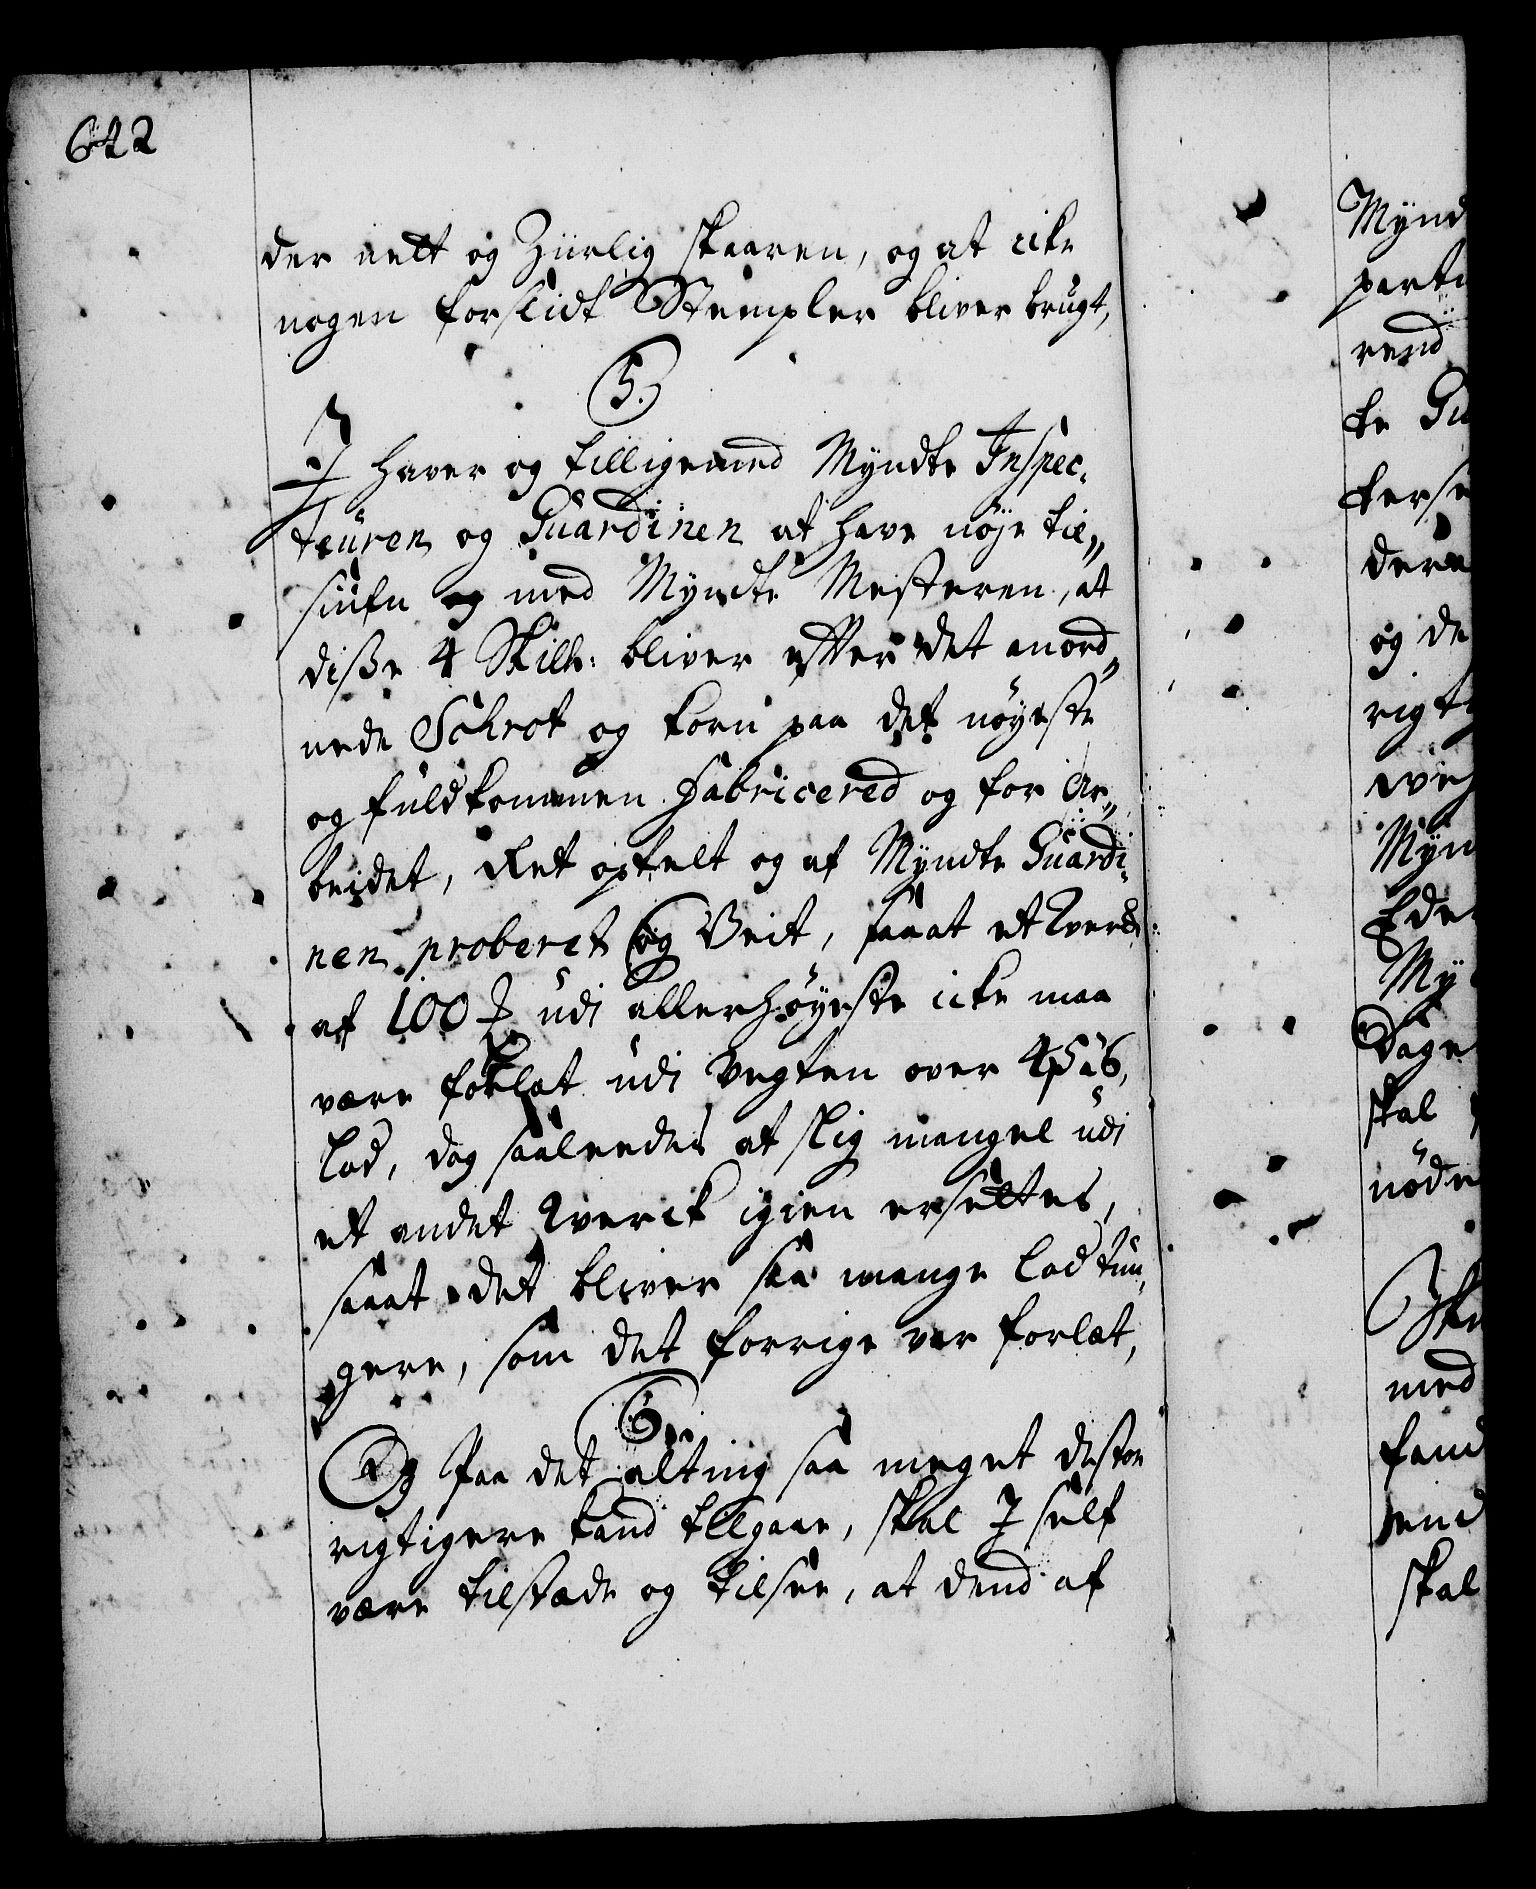 622
der nett og Ziirlig skaaren, og at icke
nogen forslidt Stempler bliver brugt,
5.
I haver og tilligemed Myndte Inspec-
teüren og Guardinen at have nøje til„
siufn og med Myndte Mesteren, at
diße 4 Skill: bliver efter det anord„
nede Schrot og korn paa det nøyeste
og fuldkommen Fabricered og for Ar„
beidet, Ret optelt og af Myndte Guardi-
nen proberet og Veit, saaat et Qverck
af 100 udi allerhøyeste icke maa
være forlat udi Vegten over
Lod, dog saaleedes at slig mangel udi
et andet Qverck igien ersettes,
saaat det bliver saa mange Lod tun-
gere, som det forrige var forlæt,
6.
Og Paa det alting saa meget desto
rigtigere kand tilgaae, skal I self
være tilstæde og tilsee, at dend af
Mynd
parti
rend
te Gu
terse
dere
og de
rigt
Myn
Ede
My
Dage
skal
nøde
med
fand
skal